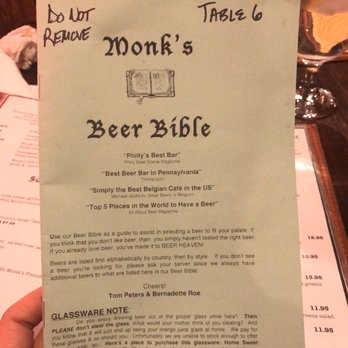 DO NOT
REMOVE
TABLE 6
Monk's
Beer Bible
"Philly's Best Bar"
Philly Beer Scene Magazine
"Best Beer Bar in Pennsylvania"
Thrillist.com
"Simply the Best Belgian Café in the US"
Michael Jackson, Great Beers of Belgium
"Top 5 Places in the World to Have a Beer"
All About Beer Magazine
Use our Beer Bible as a guide to assist in selecting a beer to fit your palate. If
you think that you don't like beer, then you simply haven't tasted the right beer.
If you already love beer, you've made it to BEER HEAVEN!
Beers are listed first alphabetically by country, then by style. If you don't see
a beer you're looking for, please ask your server since we always have
additional beers to what are listed here in our Beer Bible.
Cheers!
Tom Peters & Bernadette Roe
GLASSWARE NOTE:
Do you enjoy drinking beer out of the proper glass while here! Then
PLEASE don't steal the glass. What would your mother think if you stealing? And
you know that it will just end up being your orange juice glass at home. We pay for
these glasses & so should you. Unfortunately we are unable to stock enough to offer
Here's a place to purchase this glassware: Home Sweet
18.95
11.95
11.95
11.95